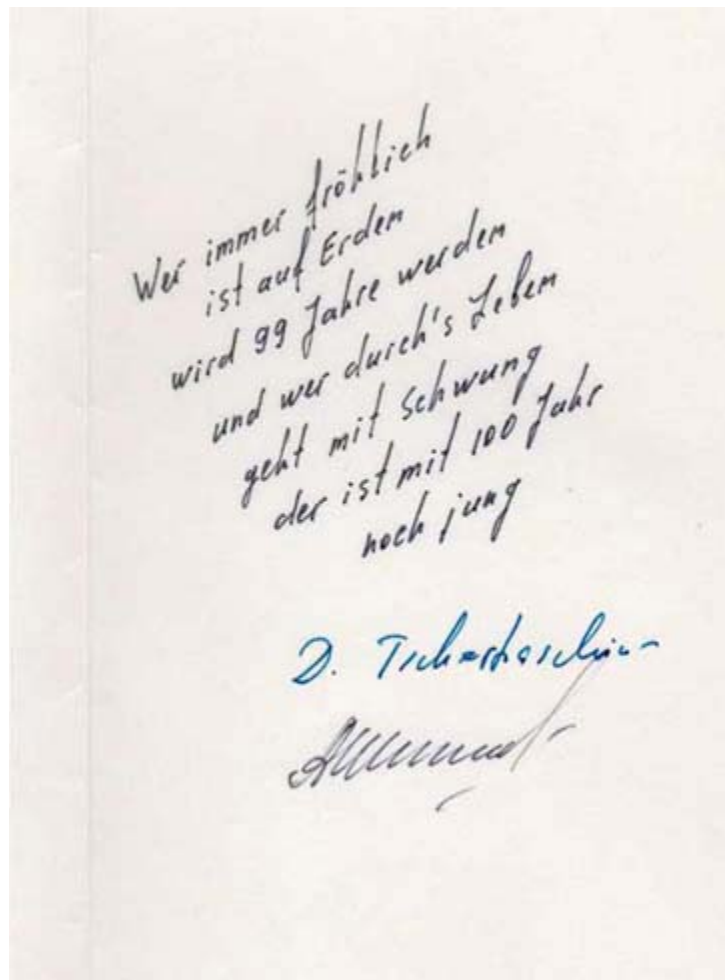 Wer immer fröhlich
ist auf Erden
wird 99 Jahre werden
und wer durch's Leben
geht mit Schwung
der ist mit 100 Jahr
noch jung
D.